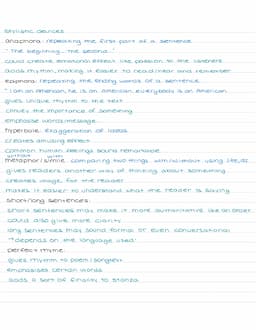 stylistic devices
anaphora: repeating the first part of a sentence
"the beginning... the second..."
could create emotional effect like passion to the listeners
adds rhythm, making it easier to read/hear and remember
Epiphora: repeating the ending words of a sentence
"I am an American, he is an American, everybody is an American
gives unique rhythm to the text
convey the importance of something
emphasise words/message
hyperbole: exaggeration of ideas
creates amusing effect
common human feelings sound remarkable
without with
metaphor/simile: comparing two things with/without using like/as
gives readers another way of thinking about something
creates image for the reader
makes it easier to understand what the reader is saying
short/long sentences:
short sentences may make it more authoritative like an order
could also give more clarity
long sentences may sound formal or even conversational
*depends on the language used
perfect rhyme:
gives rhythm to poem/song/text
emphasises certain words
adds a sort of finality to stanza